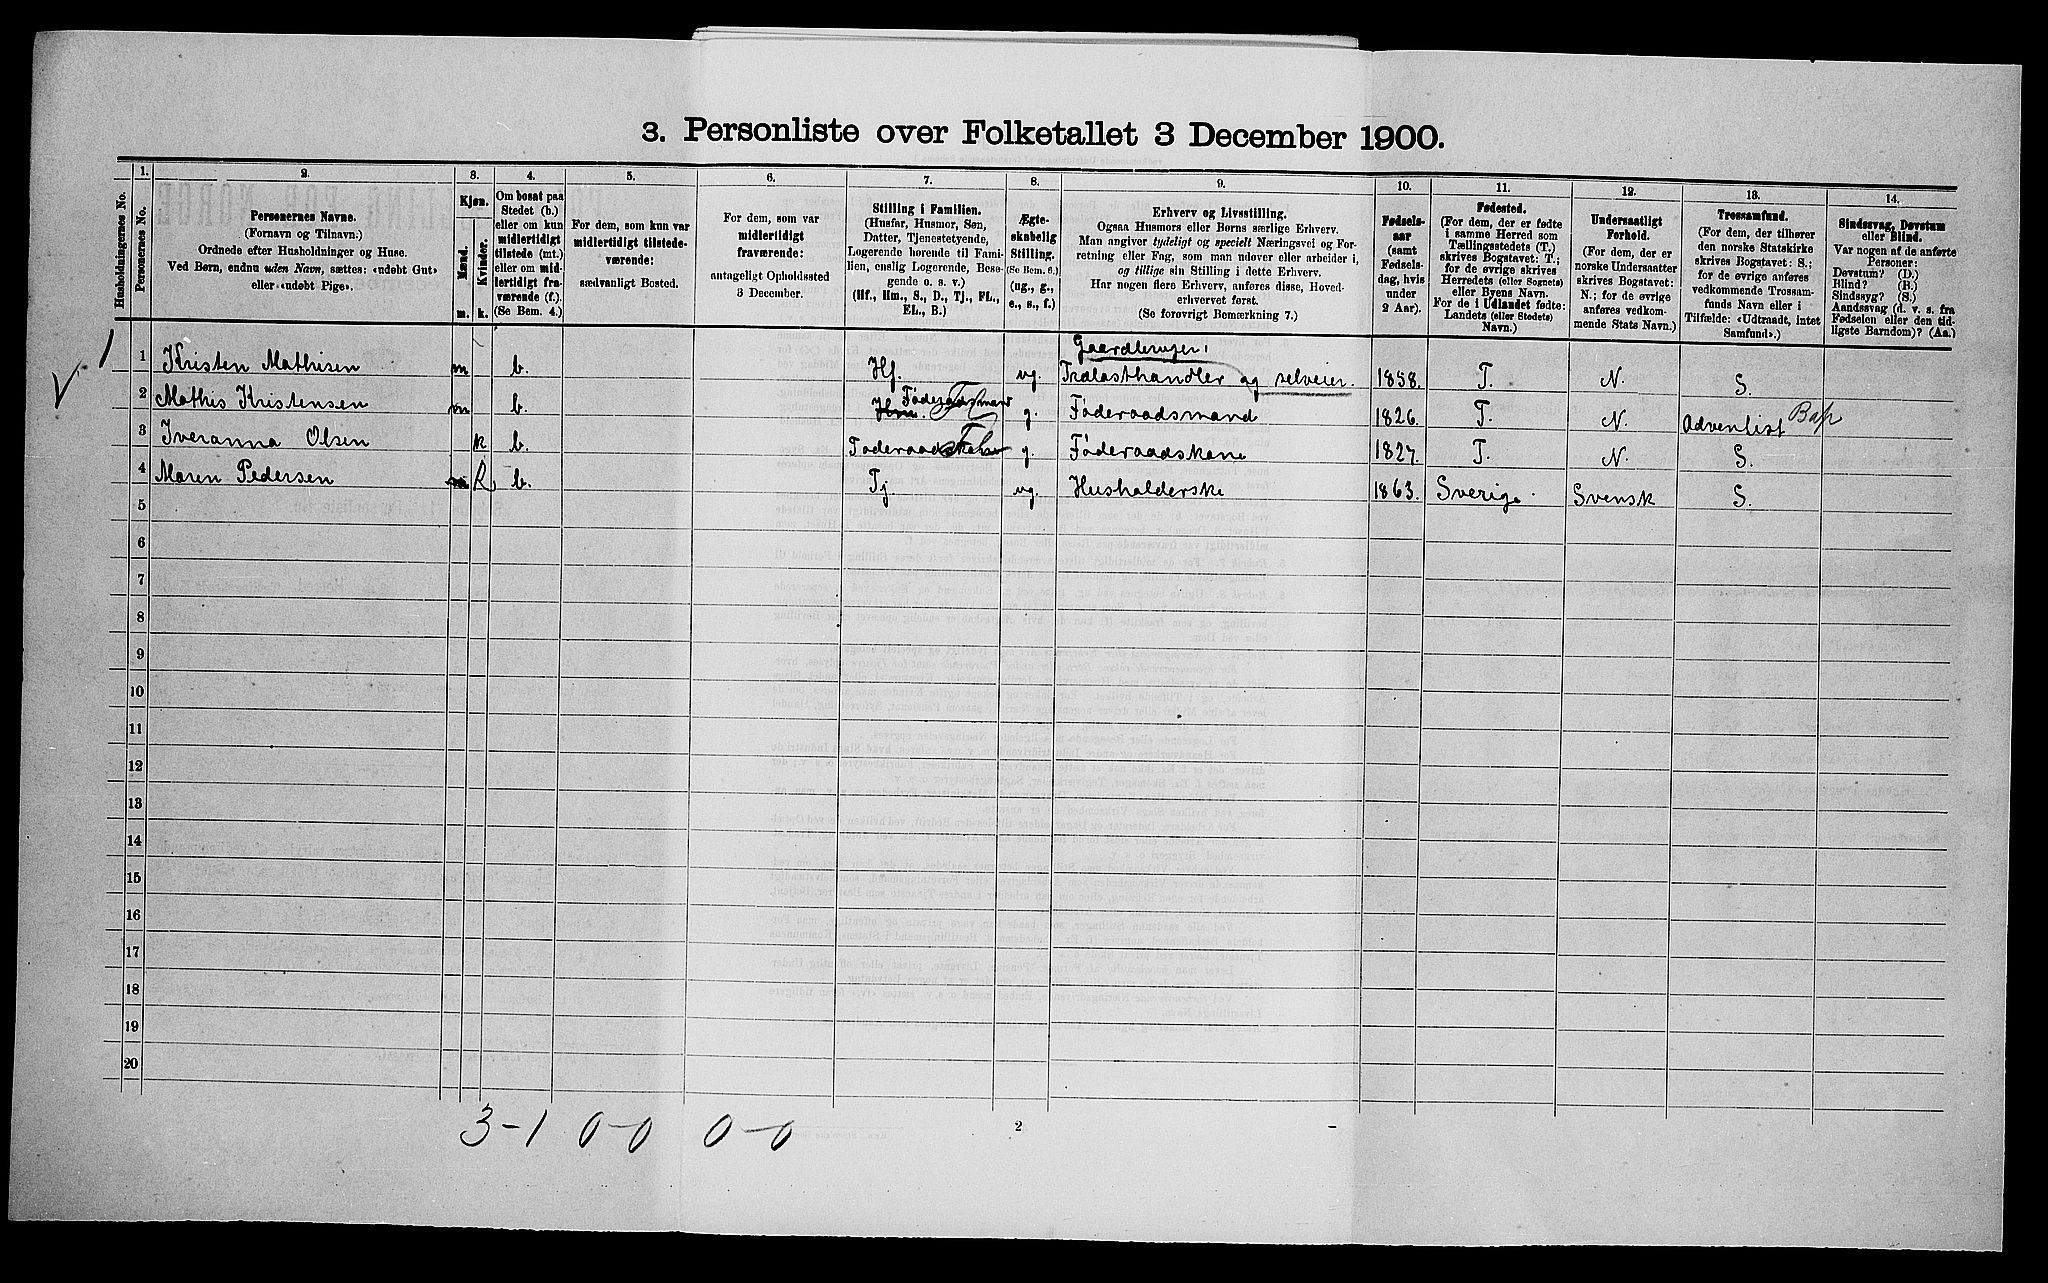 3. Personliste over Folketallet 3 December 1900.
Husholdningernes No.
1.
Personernes No.
2.
Personernes Navne.
(Fornavn og Tilnavn.)
Ordnede efter Husholdninger og Huse.
Ved Børn, endnu uden Navn, sættes: «udøbt Gut»
eller «udøbt Pige».
3.
Kjøn.
Mænd.
Kvinder.
m. k.
4.
Om bosat paa
Stedet (b.)
eller om kun
midlertidigt
tilstede (mt.)
eller om mid-
lertidigt fra-
værende (f.)
(Se Bem. 4.)
5.
For dem, som kun var
midlertidigt tilstede-
værende:
sædvanligt Bosted.
6.
For dem, som var
midlertidigt
fraværende:
antageligt Opholdssted
3 December.
7.
Stilling i Familien.
(Husfar, Husmor, Søn,
Datter, Tjenestetyende,
Logerende hørende til Fami-
lien, enslig Logerende, Besø-
gende o. s. v.)
(Hf., Hm., S., D., Tj., FL.,
EL., B.)
8.
Ægte-
skabelig
Stilling.
(Se Bem. 6.)
(ug., g.,
e., s., f.)
9.
Erhverv og Livsstilling.
Ogsaa Husmors eller Børns særlige Erhverv.
Man angiver tydeligt og specielt Næringsvei og For-
retning eller Fag, som man udøver eller arbeider i,
og tillige sin Stilling i dette Erhverv.
Har nogen flere Erhverv, anføres disse, Hoved-
erhvervet først.
(Se forøvrigt Bemærkning 7.)
10.
Fødsels-
aar
(samt
Fødsels-
dag, hvis
under
2 Aar).
11.
Fødested.
(For dem, der er fødte
i samme Herred som
Tællingsstedets (T.)
skrives Bogstavet: T.;
for de øvrige skrives
Herredets (eller Sognets)
eller Byens Navn.
For de i Udlandet fødte:
Landets (eller Stedets)
Navn.)
12.
Undersaatligt
Forhold.
(For dem, der er
norske Undersaatter
skrives Bogstavet:
N.; for de øvrige
anføres vedkom-
mende Stats Navn.)
13.
Trossamfund.
(For dem, der tilhører
den norske Statskirke
skrives Bogstavet: S.;
for de øvrige anføres
vedkommende Trossam-
funds Navn eller i
Tilfælde: «Udtraadt, intet
Samfund».)
14.
Sindssvag, Døvstum
eller Blind.
Var nogen af de anførte
Personer:
Døvstum? (D.)
Blind? (B.)
Sindssyg? (S.)
Aandssvag (d. v. s. fra
Fødselen eller den tid-
ligste Barndom)? (Aa.)
Gaardbruger,
1 1 Kristen Mathisen m b. Hf. ug. Trælasthandler og selveier. 1858. T. N. S.
2 Mathis Kristensen m b. Hm. Føderaadsmand FL g. Føderaadsmand 1826. T. N. Adventist Bapt
3 Iveranna Olsen k b. Føderaadskone g. Føderaadskone 1827. T. N. S.
4 Maren Pedersen m k b. Tj. ug. Husholderske 1863. Sverige. Svensk S.
5
6
7
8
9
10
11
12
13
14
15
16
17
18
19
20
3-1 0-0 0-0
2